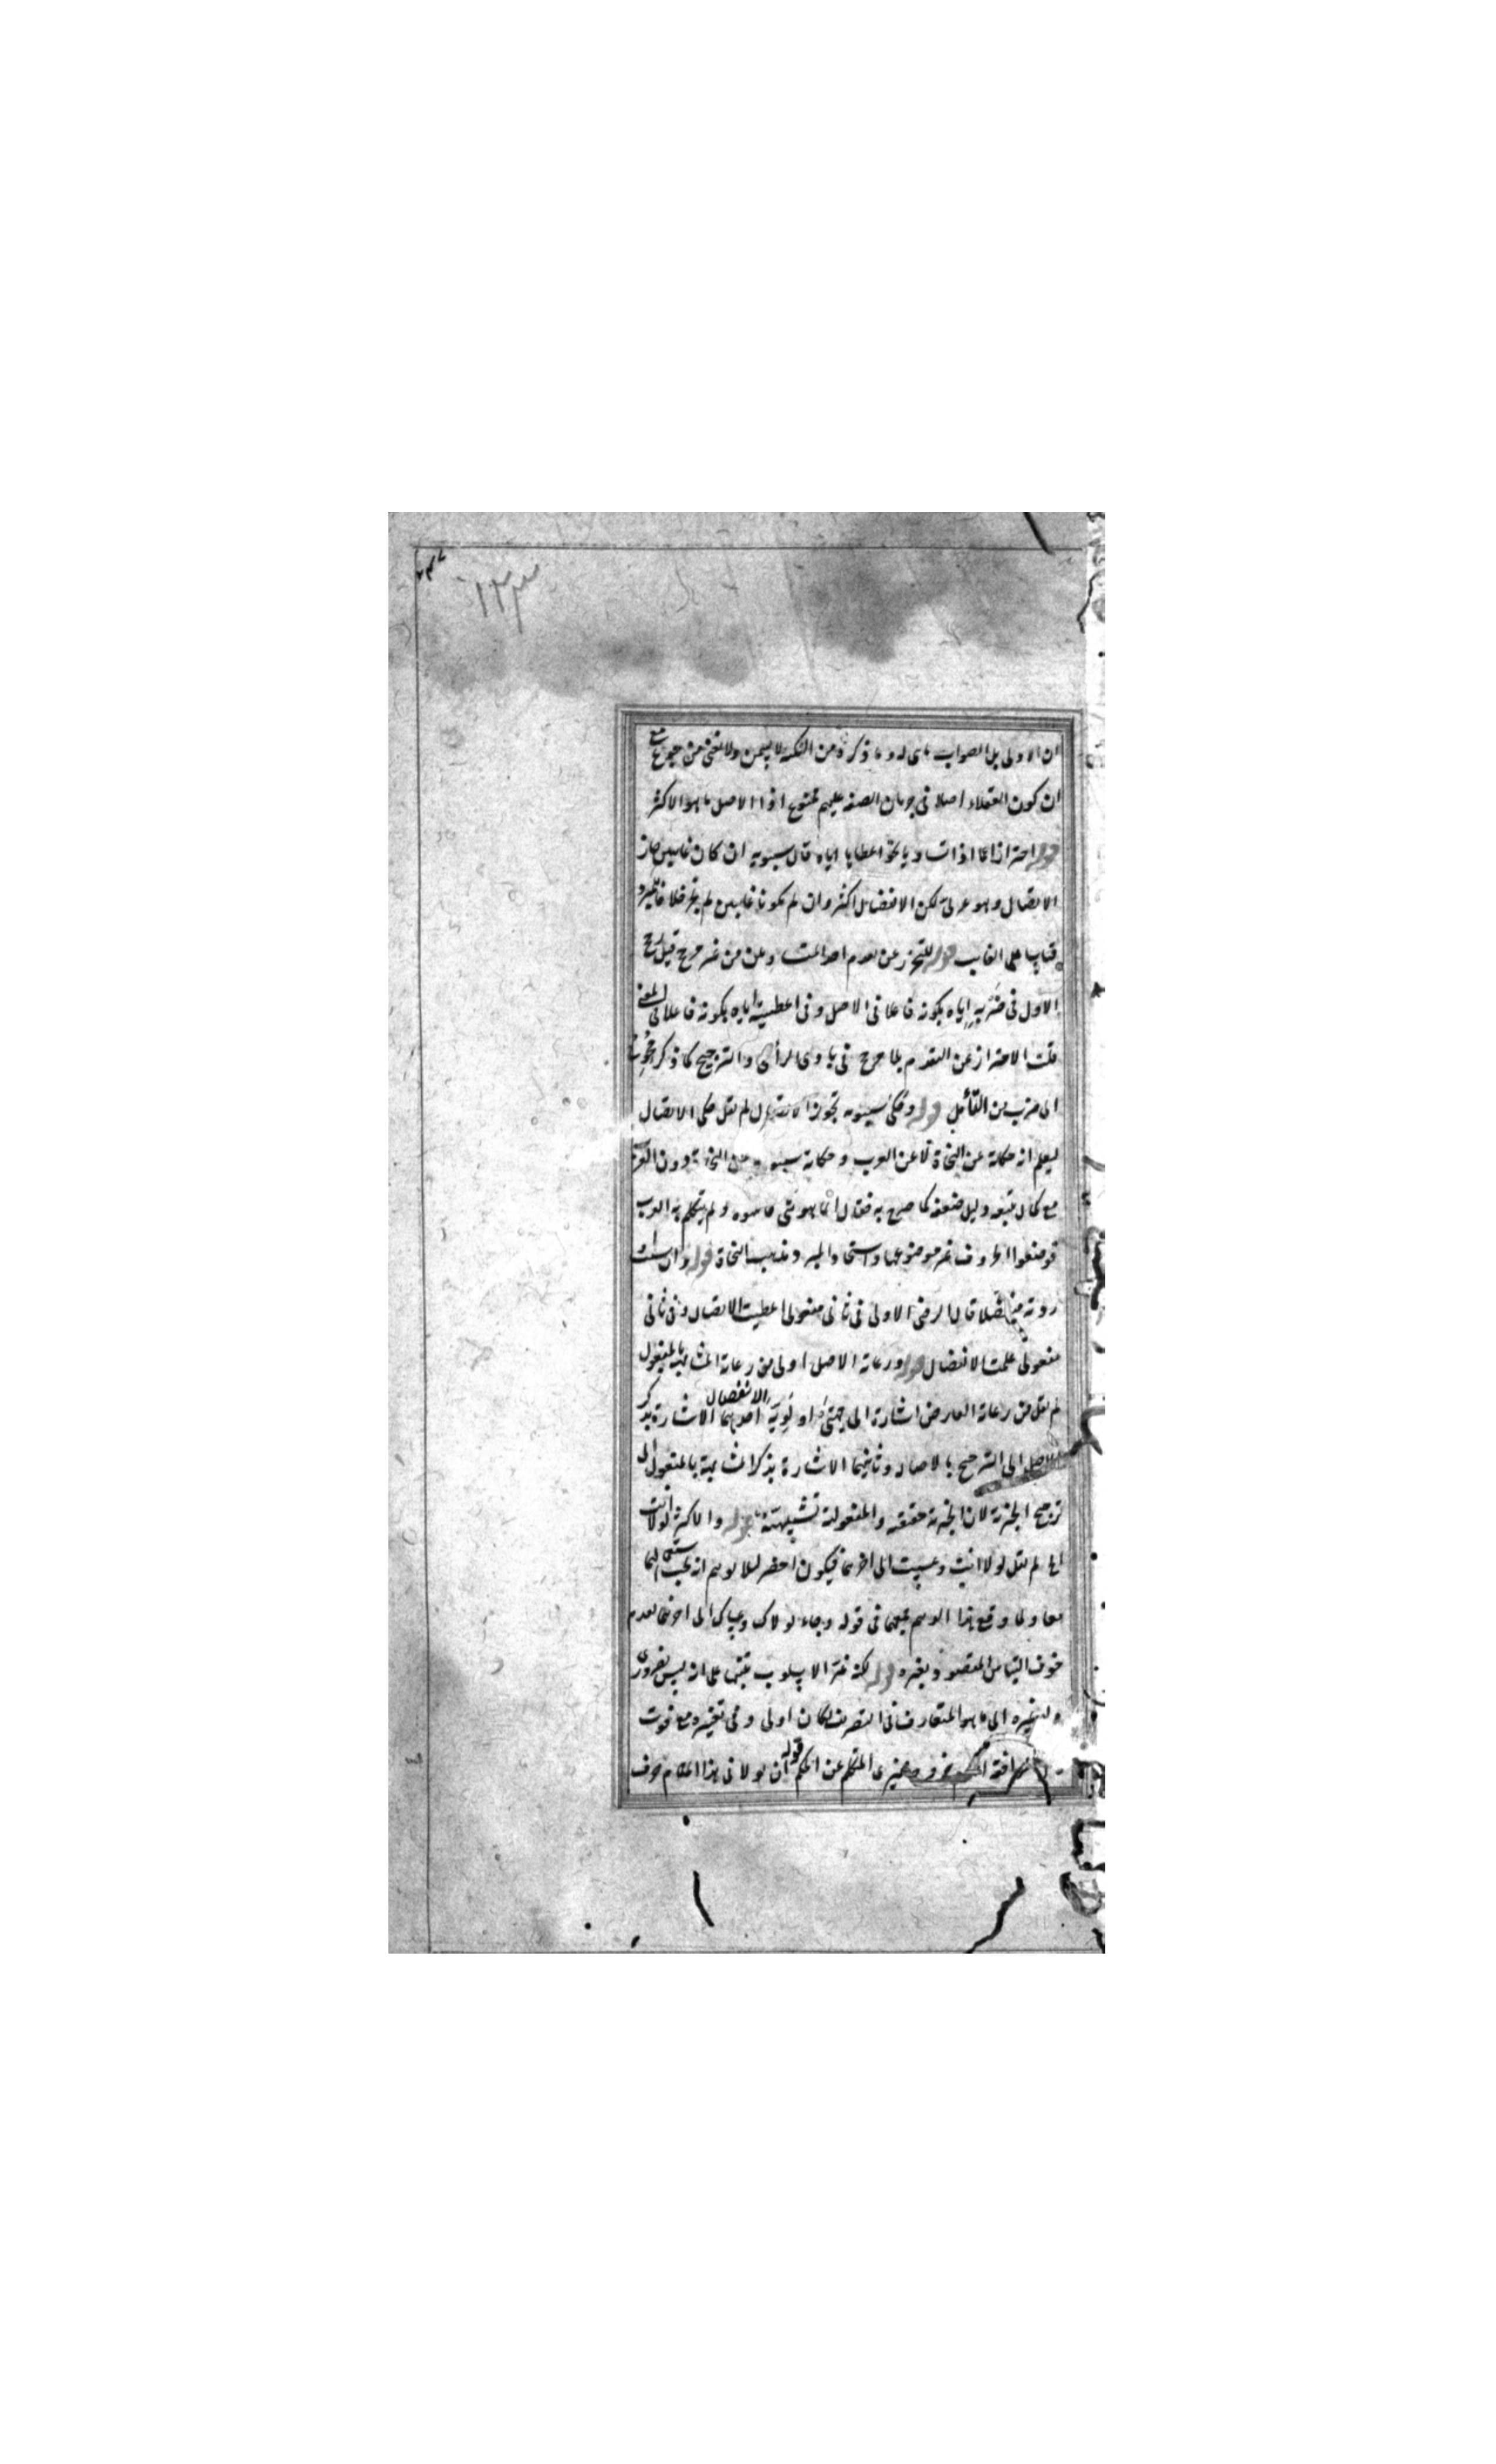 ١٢٣
ان الاولى بل الصواب ما في له وما ذكره من النكتة لا يسمن ولا يغني من جوع مع
ان كون العقلاء اصلا في جريان الصفة عليهم ممنوع اذا الاصل ما هو الاكثر
قوله احترازا عما اذا تساويا نحو اعطاها اياه قال سيبويه ان كان غايبين جاز
الاتصال وهو عربي لكن الانفصال اكثر وان لم يكونا غايبين لم يجز فلا
على الغايب قوله للتحرز عن تقدم احد من غير مرجح قيل رجح
الاول في ضربيه اياه بكونه فاعلا في الاصل وفي اعطيته اياه بكونه فاعلا في المعنى
قلت الاحتراز عن التقدم بلا مرجح في بادي الرأي والترجيح كما ذكر
الى ضرب من التأمل قوله وحكى سيبويه تجويز الاتصال لم يقل حكى الاتصال
ليعلم انه حكاية عن النحاة لا عن العرب وحكاية سيبويه عن النحاة دون العرب
مع كمال تتبعه دليل ضعفه كما صرح به فقال انما هو شي قاسوه ولم يتكلم به العرب
فوضعوا الحروف غير موضوعها واستجاد المبرد مذهب النحاة قوله وان شئت
رويته منفصلا قال الرضي الاولى في ثاني مفعولي اعطيت الاتصال وفي ثاني
مفعولي علمت الانفصال قوله ورعاية الاصل اولى من رعاية المشابهة بالمفعول
لم يقل من رعاية العارض اشارة الى جهتي اولوية الانفصال احدهما الاشارة بذكر
الاصل الى الترجيح بالاصالة وثانيهما الاشارة بذكر المشابهة بالمفعول الى
ترجيح الخبرية لان الخبرية حقيقة والمفعولية تشبيهية قوله والاكثر لولا انت
الخ لم يقل لولا انت وعسيت الى اخرهما فيكون اخصر لئلا يوهم انه
معا ولما وقع هذا الوهم في قوله وجاء لولاك وعساك الى اخرهما لعدم
خوف التباس المقصود بغيره قوله لكنه غير الاسلوب تنبيها على انه ليس بضروري
ولو غيره الى ما هو المتعارف في التصريف لكان اولى وفي تغييره مع فوت
ضميري المتكلم عن الحكم قوله ان لولا في هذا المقام حرف